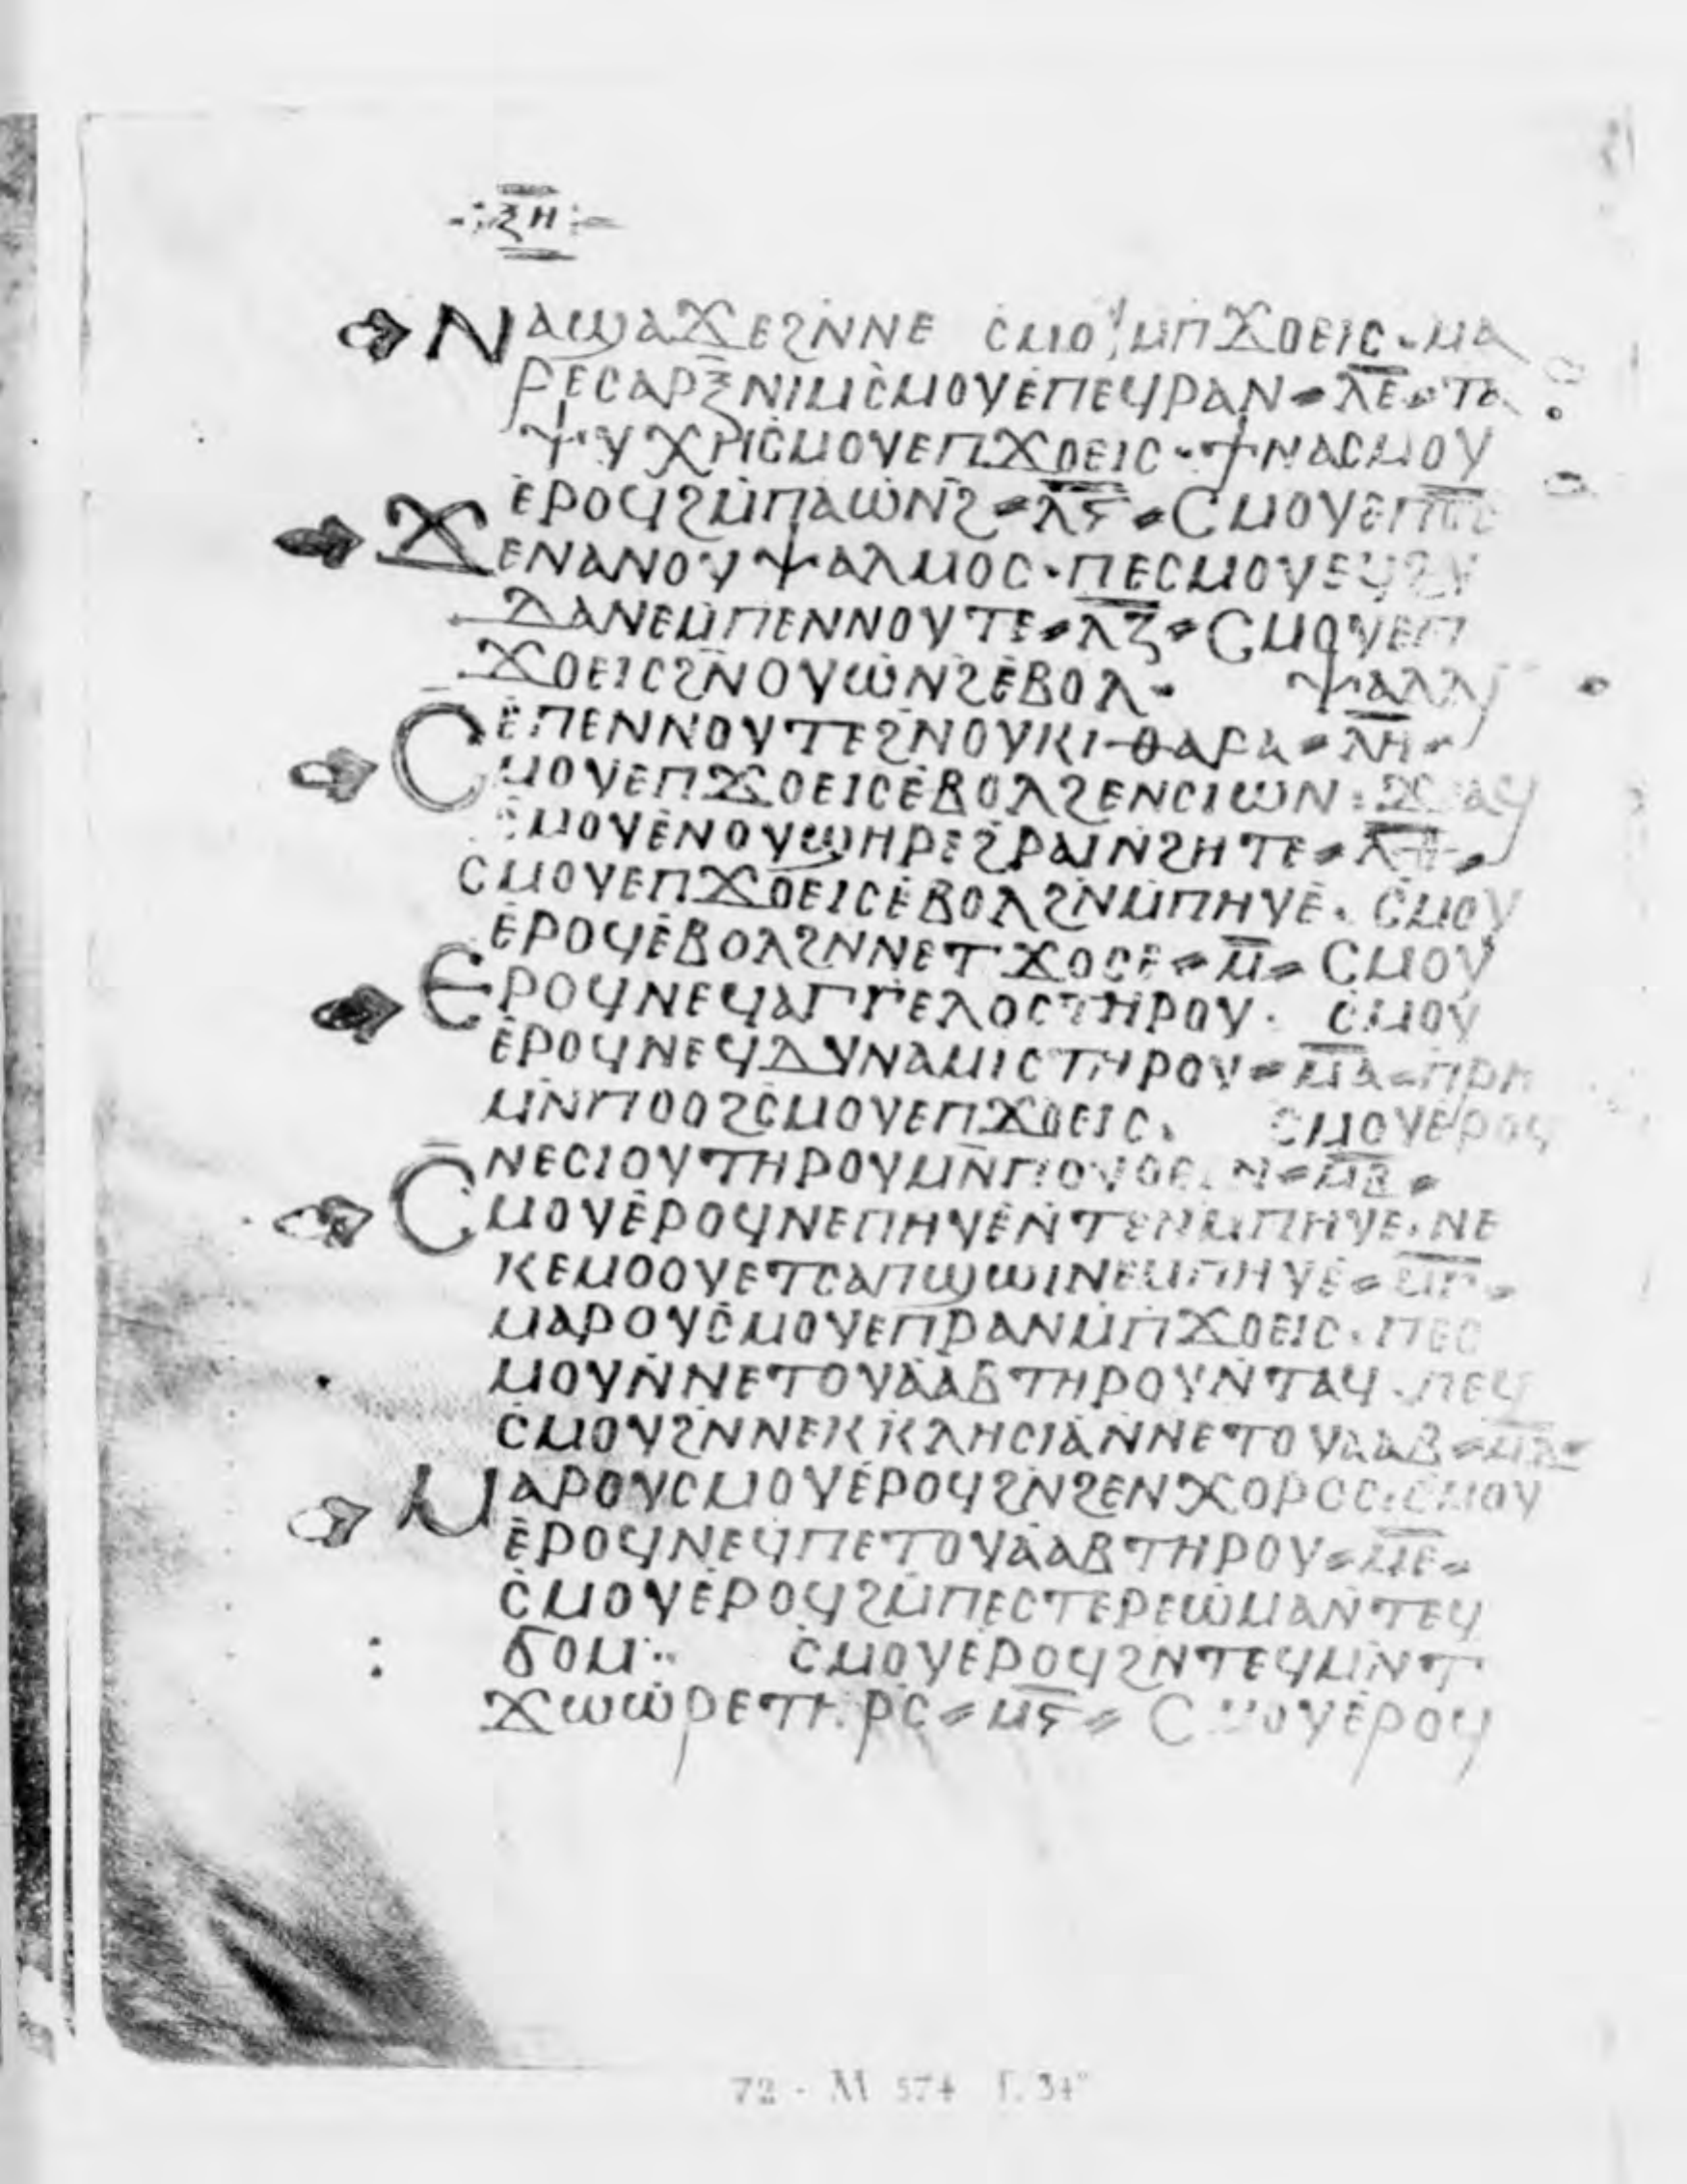 ⲝⲏ
ⲚⲀϢⲀϪⲈϨⲚⲚⲈ ⲤⲘⲞⲨⲘⲠϪⲞⲈⲒⲤ·ⲘⲀ
ⲢⲈⲤⲀⲢⲜⲚⲒⲘⲤⲘⲞⲨⲈⲠⲈϤⲢⲀⲚ ⲖⲈ̅ ⲦⲀ
ⲮⲨⲬⲎⲤⲘⲞⲨⲈⲠϪⲞⲈⲒⲤ·ϮⲚⲀⲤⲘⲞⲨ
ⲈⲢⲞϤϨⲘⲠⲀⲰⲚϨ ⲖⲊ̅ ⲤⲘⲞⲨ
ϪⲈⲚⲀⲚⲞⲨⲮⲀⲖⲘⲞⲤ·ⲠⲈⲤⲘⲞⲨ
ⲆⲀⲚⲈⲘⲠⲈⲚⲚⲞⲨⲦⲈ ⲖⲌ̅ ⲤⲘⲞⲨⲈⲠ
ϪⲞⲈⲒⲤϨⲚⲞⲨⲰⲚϨⲈⲂⲞⲖ· ⲮⲀⲖⲖⲒ
ⲈⲠⲈⲚⲚⲞⲨⲦⲈϨⲚⲞⲨⲔⲒⲐⲀⲢⲀ ⲖⲎ̅
ⲤⲘⲞⲨⲈⲠϪⲞⲈⲒⲤⲈⲂⲞⲖϨⲈⲚⲤⲒⲰⲚ
ⲤⲘⲞⲨⲈⲚⲞⲨϢⲎⲢⲈϨⲢⲀⲒⲚϨⲎⲦⲈ ⲖⲐ̅
ⲤⲘⲞⲨⲈⲠϪⲞⲈⲒⲤⲈⲂⲞⲖϨⲚⲘⲠⲎⲨⲈ· ⲤⲘⲞⲨ
ⲈⲢⲞϤⲈⲂⲞⲖϨⲚⲚⲈⲦϪⲞⲤⲈ Ⲙ̅ ⲤⲘⲞⲨ
ⲈⲢⲞϤⲚⲈϤⲀⲄⲄⲈⲖⲞⲤⲦⲎⲢⲞⲨ· ⲤⲘⲞⲨ
ⲈⲢⲞϤⲚⲈϤⲆⲨⲚⲀⲘⲒⲤⲦⲎⲢⲞⲨ ⲘⲀ̅ ⲠⲢⲎ
ⲘⲚⲠⲞⲞϨⲤⲘⲞⲨⲈⲠϪⲞⲈⲒⲤ· ⲤⲘⲞⲨⲈⲢⲞϤ
ⲚⲈⲤⲒⲞⲨⲦⲎⲢⲞⲨⲘⲚⲠⲞⲨⲞⲈⲒⲚ ⲘⲂ̅
ⲤⲘⲞⲨⲈⲢⲞϤⲚⲈⲠⲎⲨⲈⲚⲦⲈⲚⲘⲠⲎⲨⲈ·ⲚⲈ
ⲔⲈⲘⲞⲞⲨⲈⲦⲤⲀⲠϢⲰⲒⲚⲈⲘⲠⲎⲨⲈ ⲘⲄ̅
ⲘⲀⲢⲞⲨⲤⲘⲞⲨⲈⲠⲢⲀⲚⲘⲠϪⲞⲈⲒⲤ·ⲠⲈⲤ
ⲘⲞⲨⲚⲚⲈⲦⲞⲨⲀⲀⲂⲦⲎⲢⲞⲨⲚⲦⲀϤ·ⲠⲈϤ
ⲤⲘⲞⲨϨⲚⲚⲈⲔⲔⲖⲎⲤⲒⲀⲚⲚⲈⲦⲞⲨⲀⲀⲂ ⲘⲆ̅
ⲘⲀⲢⲞⲨⲤⲘⲞⲨⲈⲢⲞϤϨⲚϨⲈⲚⲬⲞⲢⲞⲤ·ⲤⲘⲞⲨ
ⲈⲢⲞϤⲚⲈϤⲠⲈⲦⲞⲨⲀⲀⲂⲦⲎⲢⲞⲨ ⲘⲈ̅
ⲤⲘⲞⲨⲈⲢⲞϤϨⲘⲠⲈⲤⲦⲈⲢⲈⲰⲘⲀⲚⲦⲈϤ
ϬⲞⲘ ⲤⲘⲞⲨⲈⲢⲞϤϨⲚⲦⲈϤⲘⲚⲦ
ϪⲰⲰⲢⲈⲦⲎⲢⲤ ⲘⲊ̅ ⲤⲘⲞⲨⲈⲢⲞϤ
72 - M 574 f. 34ᵛ